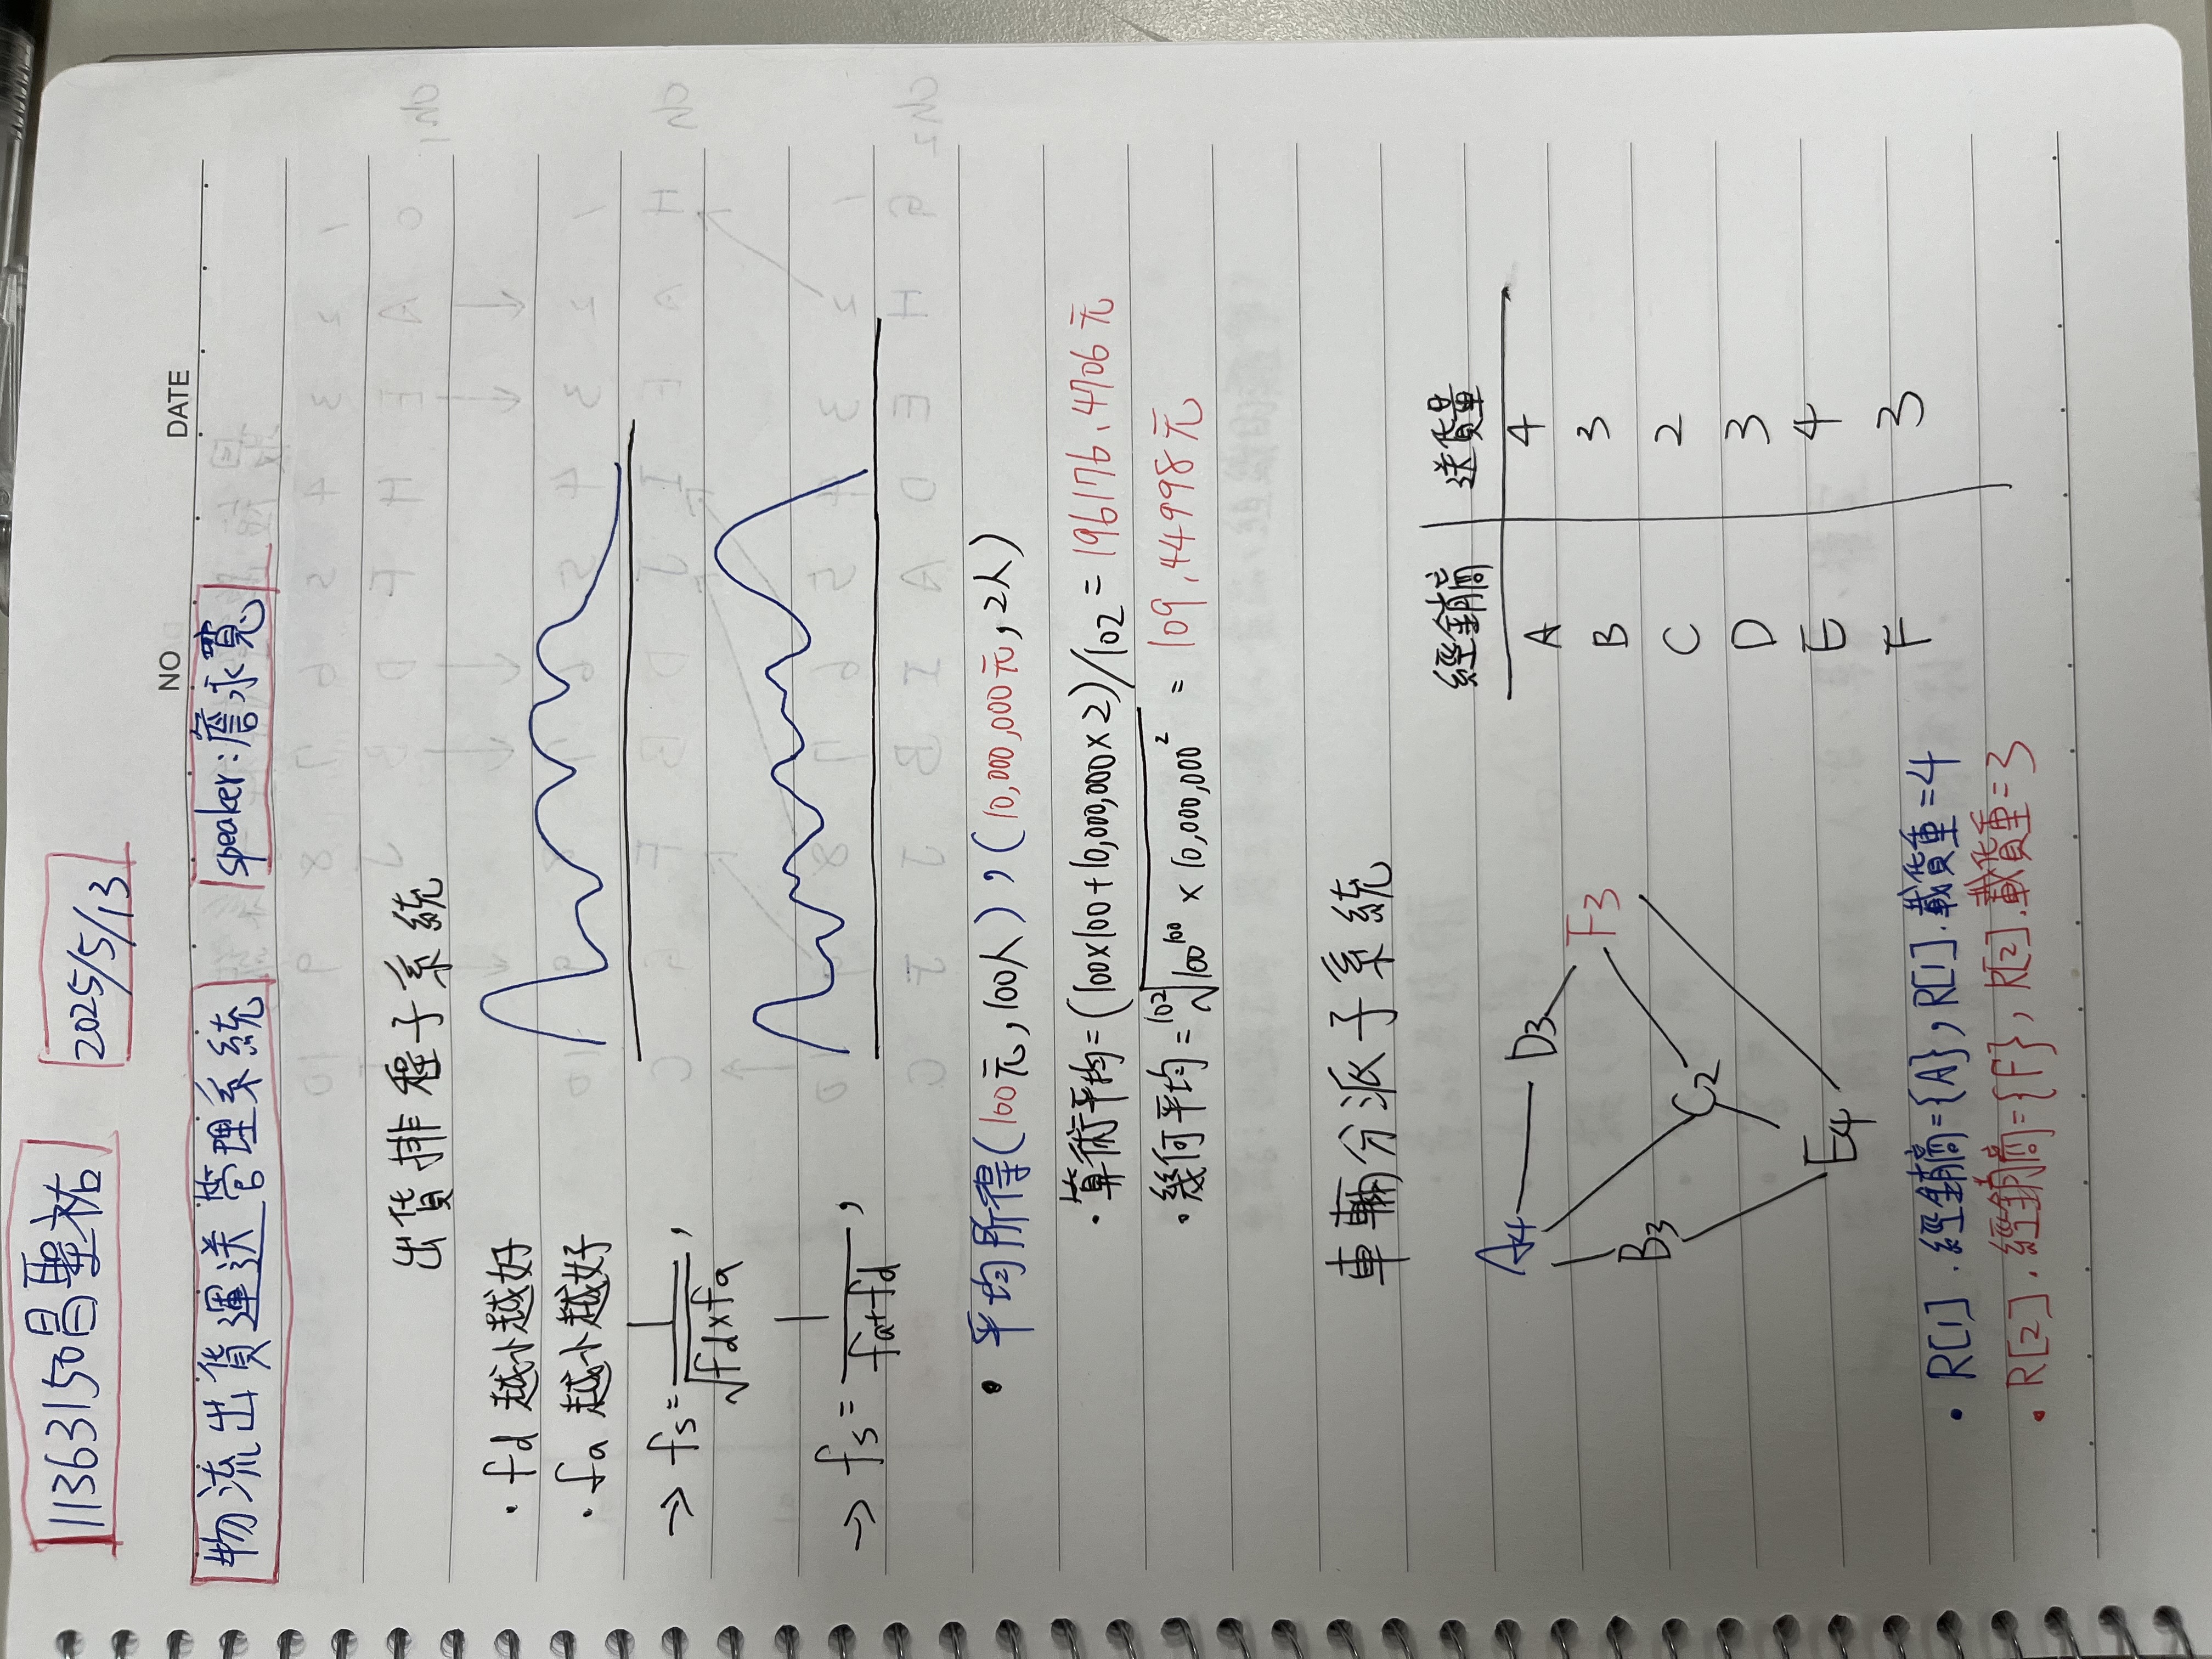 11363150昌聖祐 2025/5/13
NO DATE
物流出貨運送管理系統 speaker:詹永寬
出貨排程子系統
· fd 越小越好
· fa 越小越好
→ fs = 1/√(fd×fa) ,
→ fs = 1/(fa+fd) ,
• 平均所得(100元,100人),(10,000,000元,2人)
· 算術平均=(100×100+10,000,000×2)/102 = 196176.4706元
· 幾何平均= ¹⁰²√(100¹⁰⁰ × 10,000,000²) = 109.44998元
車輛分派子系統
A4 D3
F3
B3
C2
E4
經銷商 送貨量
A 4
B 3
C 2
D 3
E 4
F 3
· R[1].經銷商={A},R[1].載貨重=4
· R[2].經銷商={F},R[2].載貨重=3